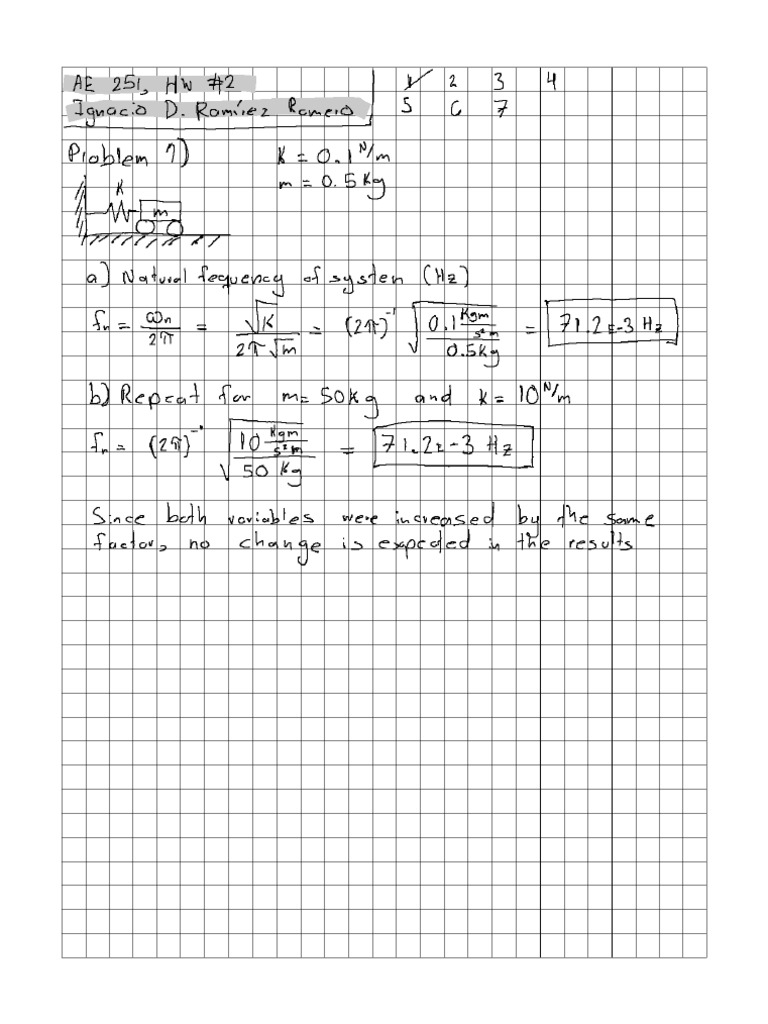 AE 251, HW #2 1 2 3 4
Ignacio D. Ramírez Romero 5 6 7
Problem 1) K = 0.1 N/m
m = 0.5 Kg
K
m
a) Natural fequency of system (Hz)
fn = ωn/2π = √K/2π√m = (2π)⁻¹ √(0.1 Kgm/s²m / 0.5Kg) = 71.2E-3 Hz
b) Repeat for m= 50Kg and K= 10 N/m
fn = (2π)⁻¹ √(10 Kgm/s²m / 50 Kg) = 71.2E-3 Hz
Since both variables were increased by the same
factor, no change is expected in the results